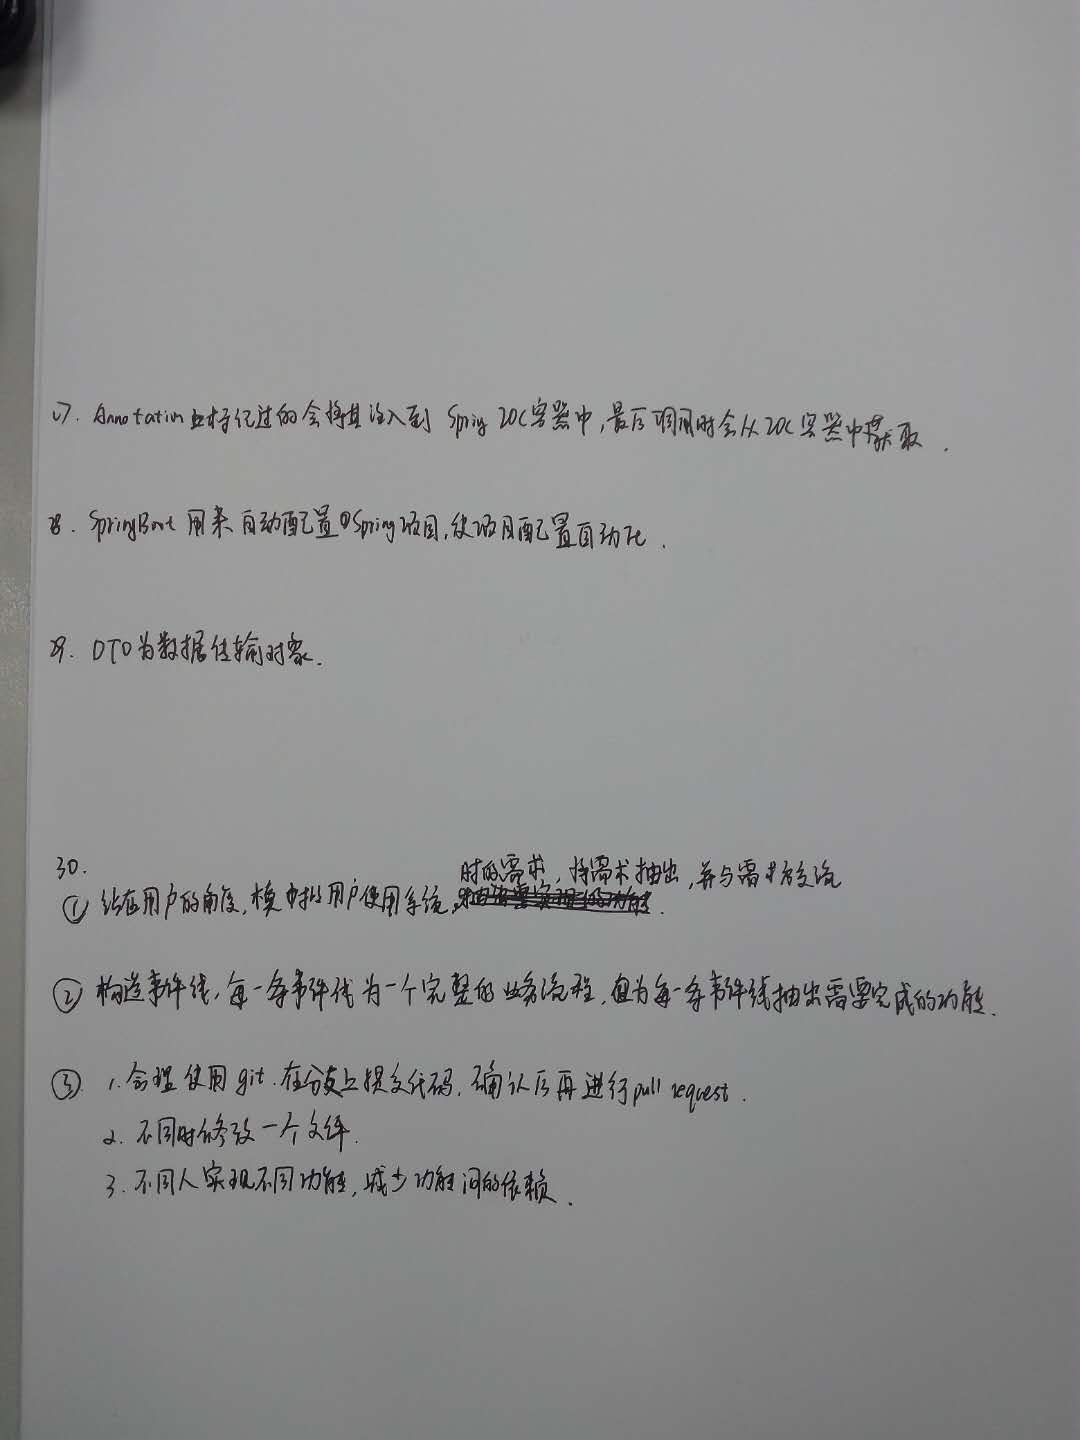 27. Annotation 标记过的会将其注入到 Spring IOC容器中,最后调用时会从IOC容器中获取.
28. SpringBoot 用来自动配置Spring项目,使项目配置自动化.
29. DTO为数据传输对象.
30.
时的需求,将需求抽出,并与需求方交流
① 站在用户的角度,模拟用户使用系统
② 构造事件线,每一条事件线为一个完整的业务流程,且为每一条事件线抽出需要完成的功能.
③ 1. 合理使用git.在分支上提交代码,确认后再进行pull request.
2. 不同时修改一个文件.
3. 不同人实现不同功能,减少功能间的依赖.